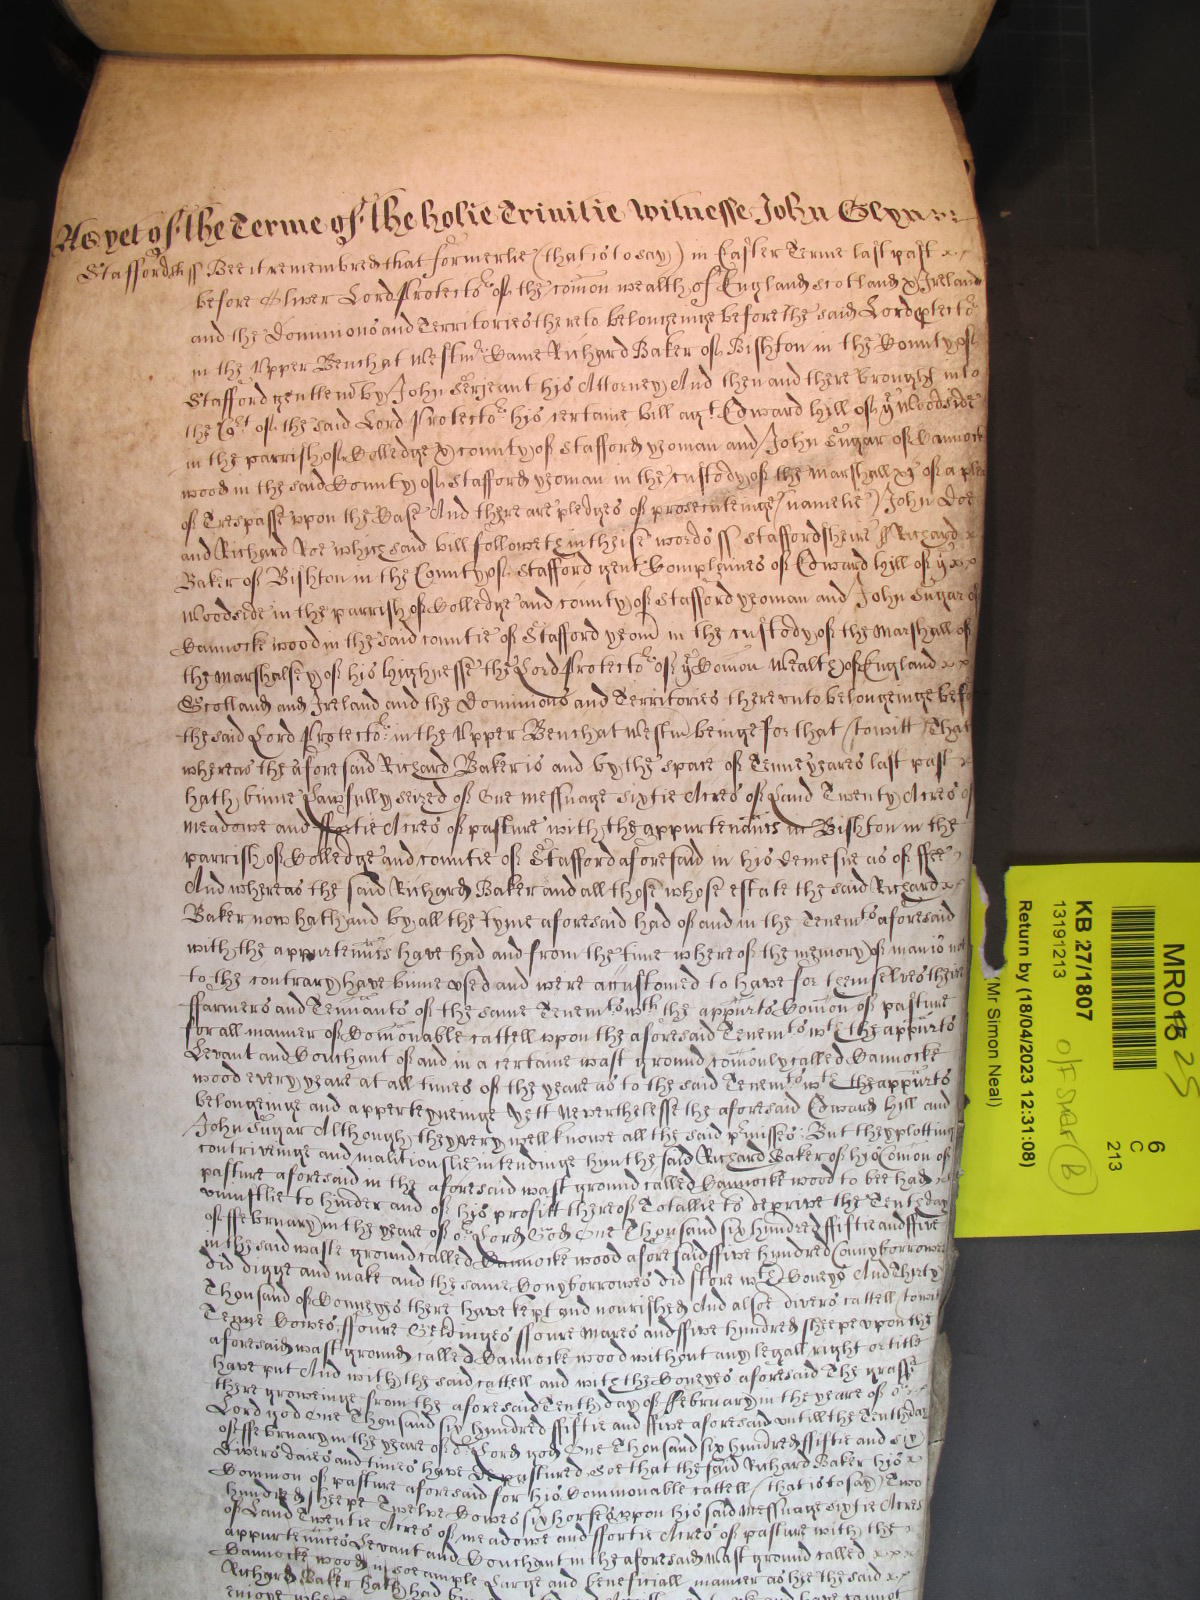 As yet of the Terme of the holie Trinitie Witnesse John Glynn
Staffordsh ss Bee it remembred that formerlie (that is to say) in Easter Terme last past
before Oliver Lord Protector of the comon wealth of England Scotland & Ireland
and the Dominions and Territories thereto belongeinge before the said Lord Protector
in the Upper Bench at Westmr Came Richard Baker of Bishton in the County of
Stafford gentlem by John Serjeant his Attorney And then and there brought into
the Cort of the said Lord Protector his certaine bill agt Edward Hill of ye Woodside
in the parrish of Colledge & county of Stafford yeoman and John Sugar of Cannock
wood in the said County of Stafford yeoman in the custody of the Marshall &c of a plea
of Trespasse upon the Case And there are pledges of prosecuteinge (namelie) John Doe
and Richard Roe which said bill followeth in theise words ss Staffordsheire ss Richard
Baker of Bishton in the County of Stafford gent Complaines of Edward Hill of ye
Woodside in the parrish of Colledge and county of Stafford yeoman and John Sugar of
Cannocke wood in the said countie of Stafford yeom in the custody of the Marshall of
the Marshalsey of his Highnesse the Lord Protector of ye Comon Wealth of England
Scotland and Ireland and the Dominions and Territories thereunto belongeinge before
the said Lord Protector in the Upper Bench at Westm beinge for that (to witt) That
whereas the aforesaid Richard Baker is and by the space of Tenne yeares last past
hath binne Lawfully seized of One messuage sixtie Acres of Land Twenty Acres of
meadowe and ffortie Acres of pasture with the appurtenances in Bishton in the
parrish of Colledge and countie of Stafford aforesaid in his demesne as of ffee
And whereas the said Richard Baker and all those whose estate the said Richard
Baker now hath and by all the tyme aforesaid had of and in the Tenemts aforesaid
with the appurtennces have had and from the time where of the memory of man is not
to the contrary have binne used and were accustomed to have for themselves their
ffarmers and Tennants of the same Tenemts wth the appurts Comon of pasture
for all manner of Comonable cattell upon the aforesaid Tenemts wth the appurts
Levant and Couchant of and in a certaine wast ground comonly called Cannocke
wood every yeare at all times of the yeare as to the said Tenemts wth the appurts
belongeinge and apperteyneinge Yett Neverthelesse the aforesaid Edward Hill and
John Sugar Although they very well knowe all the said premisses But they plotting
contriveinge and malitiouslie intendinge him the said Richard Baker of his Comon of
pasture aforesaid in the aforesaid wast ground called Cannocke wood to bee had
uniustlie to hinder and of his profitt thereof Totallie to deprive the Tenth day
of ffebruary in the yeare of or Lord God One Thousand six hundred ffiftie and ffive
in the said waste ground called Cannocke wood aforesaid ffive hundred Connyborrowes
did digge and make and the same Conyborrowes did store wth Coneys And Thirty
Thousand of Connyes there have kept and nourished And alsoe divers cattell (to witt)
Tenne Cowes ffoure Geldinges ffoure Mares and ffive hundred sheepe upon the
aforesaid wast ground called Cannocke wood without any legall right or title
have put And with the said cattell and with the Coneyes aforesaid The grasse
there groweinge from the aforesaid Tenth day of ffebruary in the yeare of or
Lord god One Thousand six hundred ffiftie and ffive aforesaid untill the Tenth day
of ffebruary in the yeare of or Lord god One Thousand six hundred ffiftie and six
divers daies and times have depastured Soe that the said Richard Baker his
Common of pasture aforesaid for his Commonable cattell (that is to say) Two
hundred sheepe Twelve Cowes six horses upon his said Messuage sixtie Acres
of Land Twentie Acres of meadowe and ffortie Acres of pasture with the
appurtennces Levant and Couchant in the aforesaid Wast ground called
Cannocke wood in soe ample Large and beneficiall manner as hee the said
Richard Baker hath had
enjoye
MR015
25
6
C
213
KB 27/1807
13191213
o/f Shar (B)
Return by (18/04/2023 12:31:08)
(Mr Simon Neal)